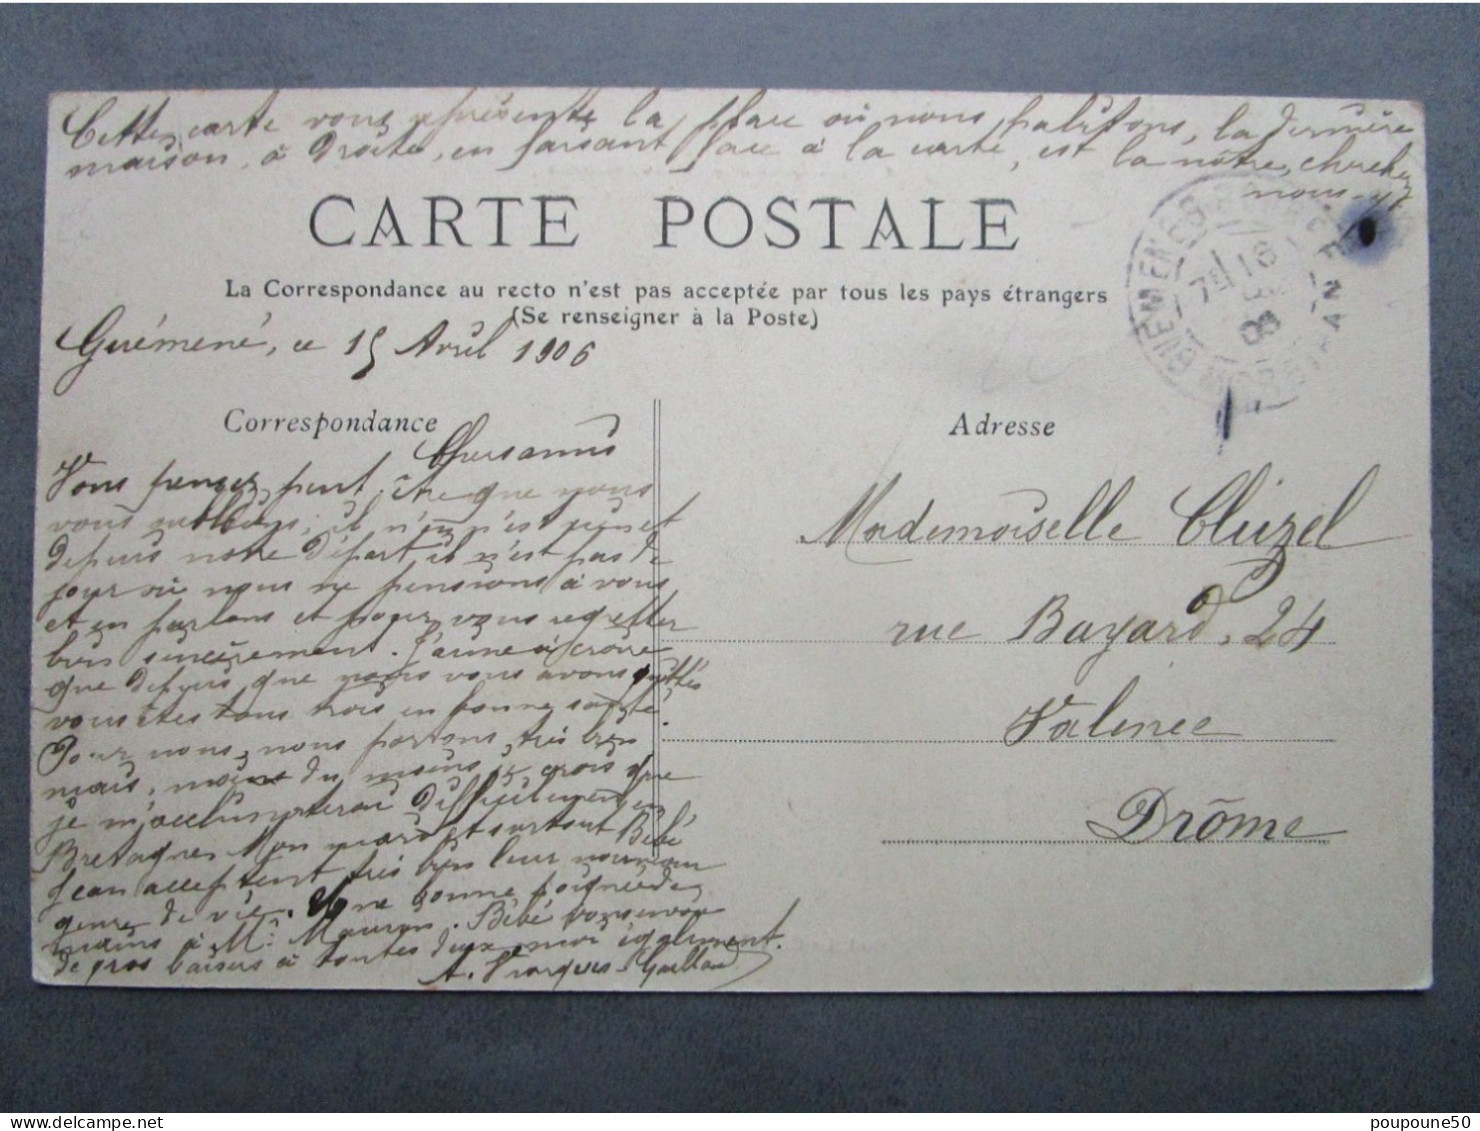 Cette carte vous représente la place où nous habitons, la dernière
maison, à droite, en faisant face à la carte, est la nôtre, cherchez
nous-y
CARTE POSTALE
La Correspondance au recto n'est pas acceptée par tous les pays étrangers
(Se renseigner à la Poste)
Guémené, ce 15 Avril 1906
Correspondance
Adresse
Vous pensez peut être que nous
vous oublions, il n'en n'est rien et
depuis notre départ il n'est pas de
jour où nous ne pensions à vous
et en parlons et pour vous regretter
bien sincèrement. J'aime à croire
que depuis que nous vous avons quittés
vous êtes tous trois en bonne santé.
Pour nous, nous portons très bien
mais, moins du moins je crois que
je m'acclimaterai difficilement en
Bretagne. Mon mari et surtout Bébé
Jean acceptent très bien leur nouveau
genre de vie. Une bonne poignée de
mains à Mr Mouron. Bébé vous envoie
de gros baisers à toutes deux, moi également.
Mademoiselle Cluzel
rue Bayard, 24
Valence
Drôme
GUEMENE
MORBIHAN
16
06
poupoune50